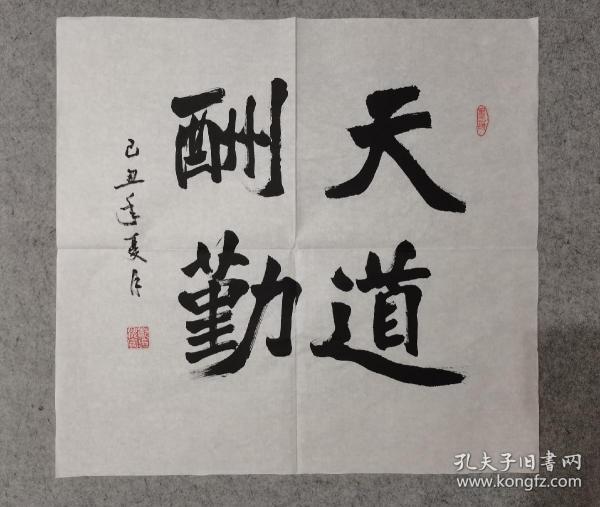 天道
酬勤
己丑年夏月
孔夫子旧书网
www.kongfz.com